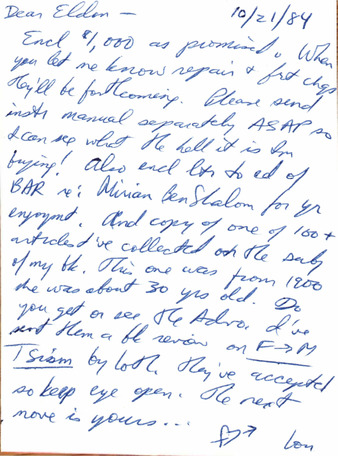 Dear Eldon — 10/21/84
Encl $1,000 as promised. When
you let me know repair + frt chgs
they'll be forthcoming. Please send
instr manual separately ASAP so
I can see what the hell it is I'm
buying! Also encl ltr to ed of
BAR re: Miriam BenShalom for yr
enjoymt. And copy of one of 100+
articles I've collected on the subj
of my bk. This one was from 1900
she was about 30 yrs old. Do
you get or see the Advo. I've
sent them a bk review on F→M
TSism by Loth. They've accepted
so keep eye open. The next
move is yours...
Lou